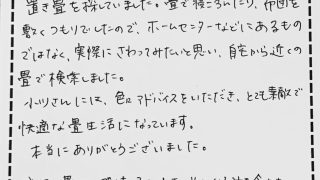 置き畳を探していました。畳で寝ころんだり、布団を
敷くつもりでしたので、ホームセンターなどにあるもの
ではなく、実際にさわってみたいと思い、自宅から近くの
畳で検索しました。
小川さんには、色々アドバイスをいただき、とても素敵で
快適な畳生活になっています。
本当にありがとうございました。